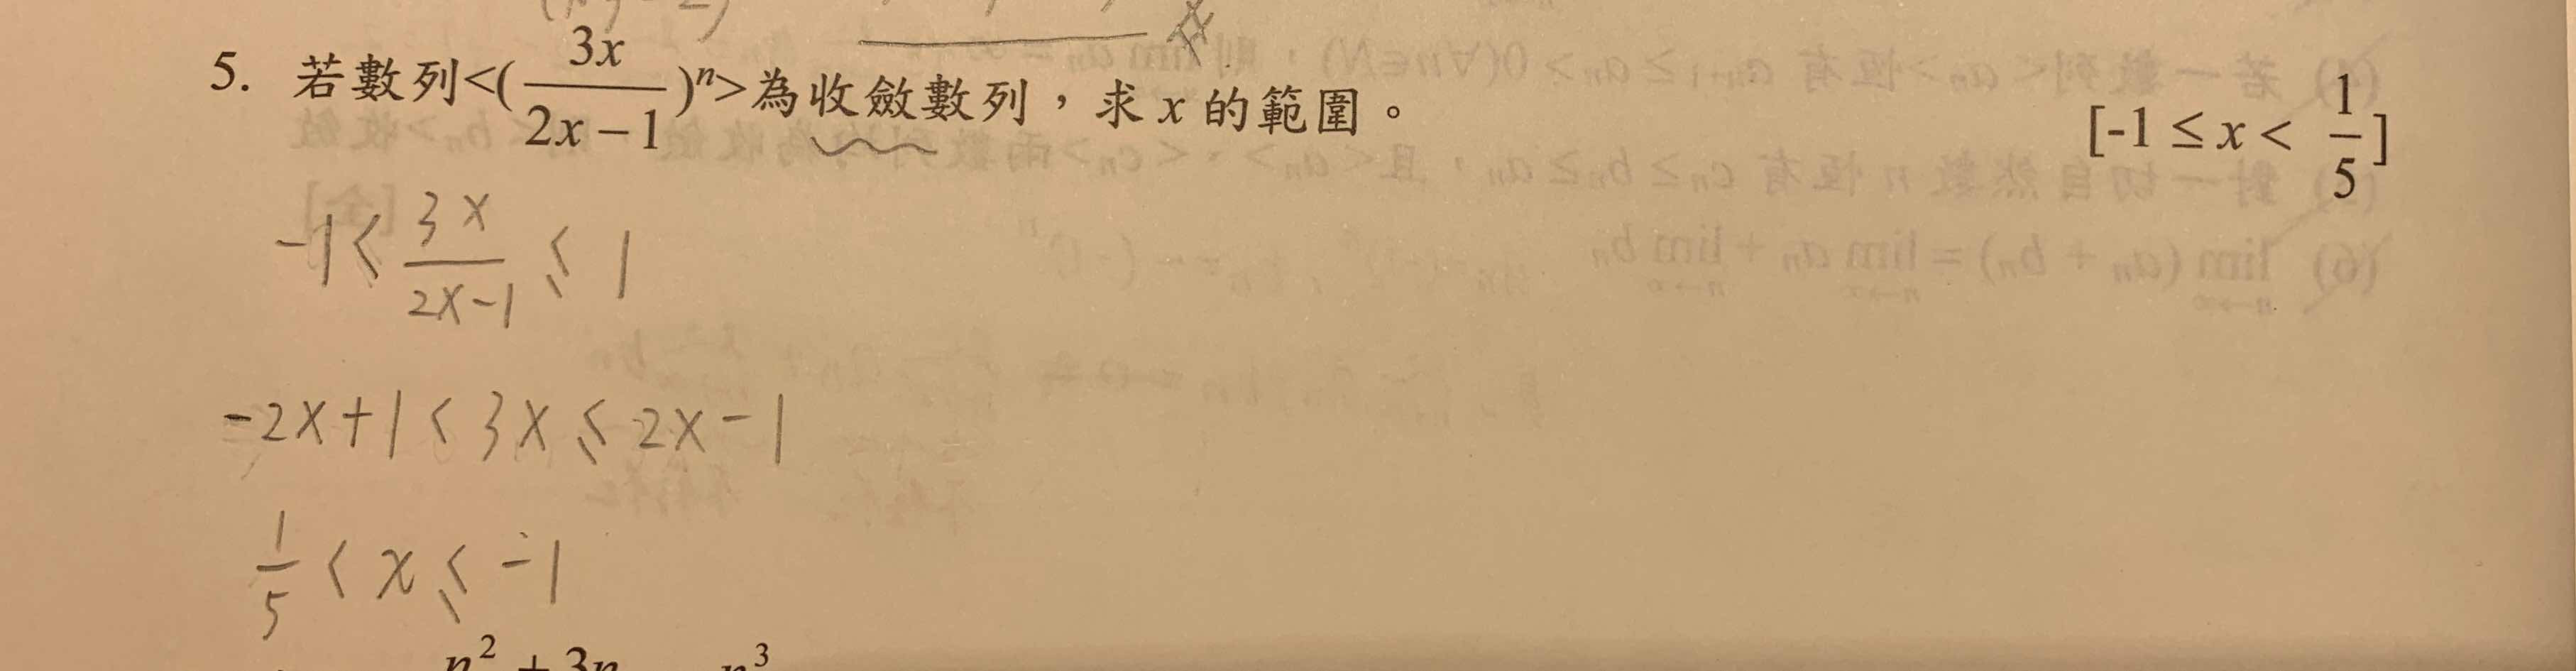 5. 若數列<(\frac{3x}{2x-1})^n>為收斂數列，求 x 的範圍。 [-1 ≤ x < \frac{1}{5}]
-1 < \frac{3x}{2x-1} ≤ 1
-2x+1 < 3x ≤ 2x-1
\frac{1}{5} < x ≤ -1
n² + 3n n³